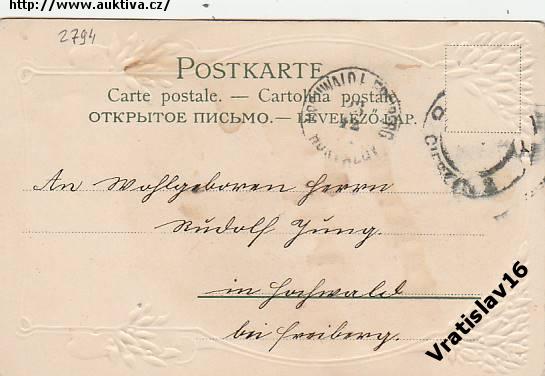 http://www.auktiva.cz/
2794
POSTKARTE.
Carte postale. — Cartolina postale.
ОТКРЫТОЕ ПИСЬМО. — LEVELEZŐ-LAP.
HOCHWALD
An Wohlgeboren Herrn
Rudolf Jung.
in Hochwald
bei Freiberg.
Vratislav16